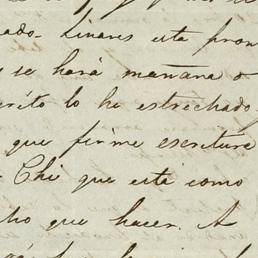 ado. Linares esta pron
se hará mañana o
crito lo he estrechado
que firme escritura
Chi que está como
ho que hacer. A